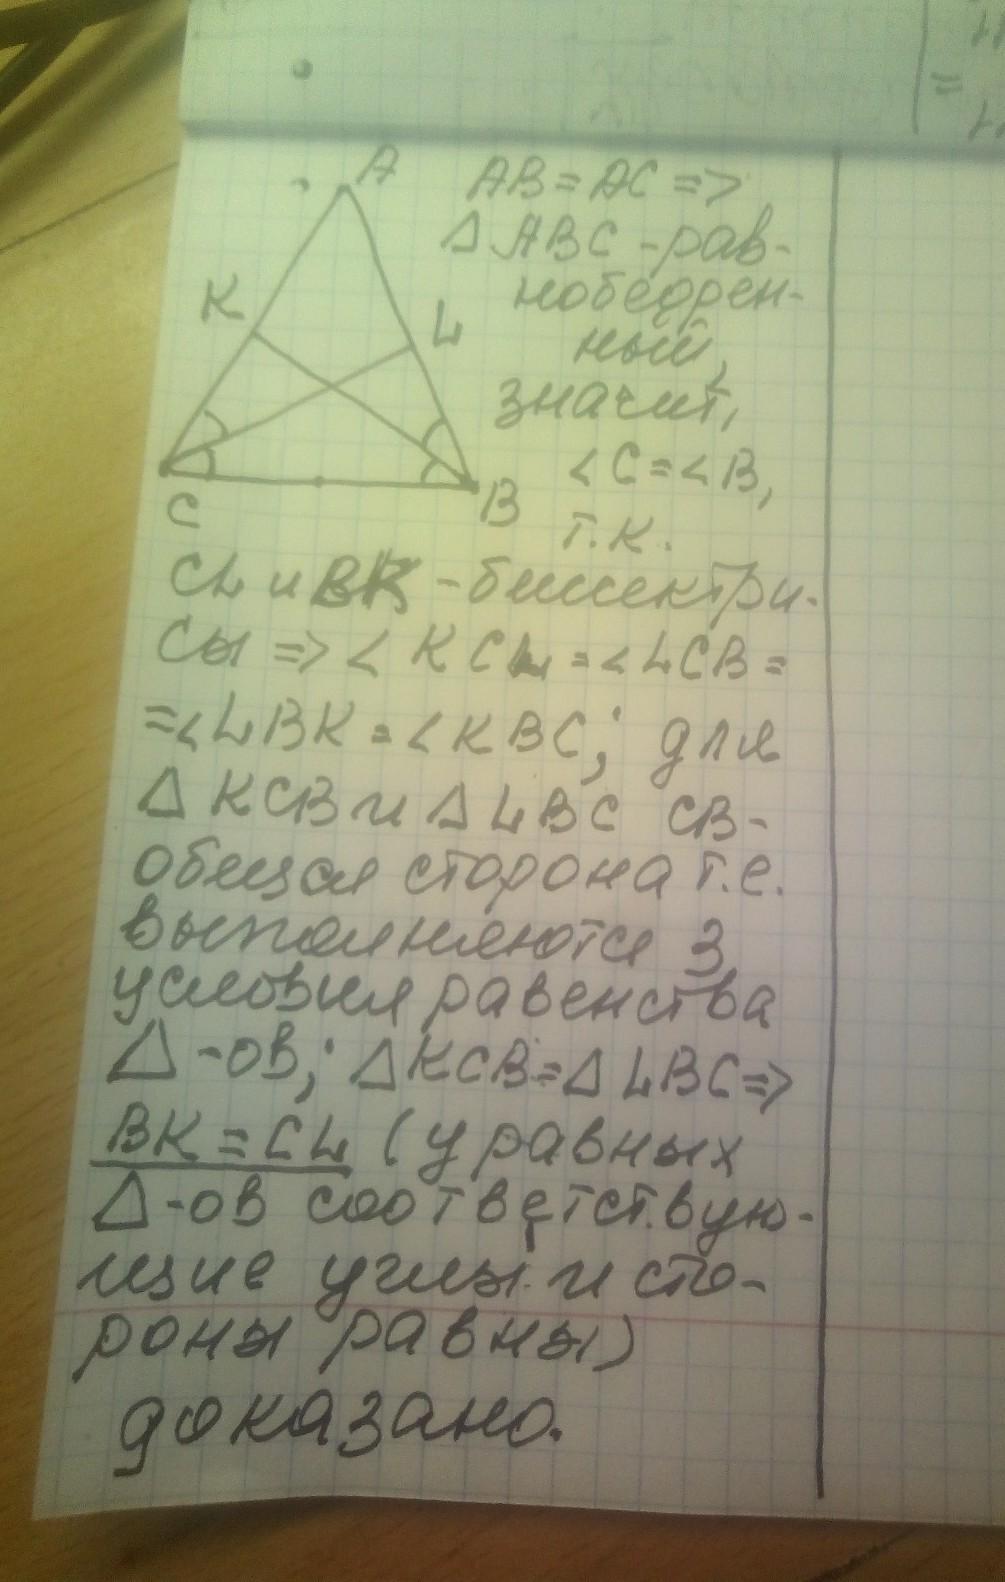 A
K
L
C
B
AB = AC =>
Δ ABC - рав-
нобедрен-
ный,
значит,
∠C = ∠B,
т.к.
CL и BK - биссектри-
сы => ∠ KCL = ∠LCB =
= ∠LBK = ∠KBC; для
Δ KCB и Δ LBC CB -
общая сторона т.е.
выполняются 3
условия равенства
Δ-ов; ΔKCB = Δ LBC =>
BK = CL (у равных
Δ-ов соответствую-
щие углы и сто-
роны равны)
доказано.